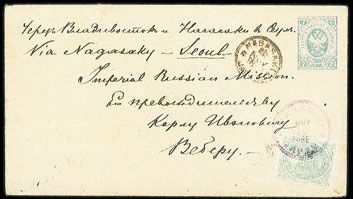 Черезъ Владивостокъ и Нагасаки въ Сеулъ.
Via Nagasaky — Seoul
Imperial Russian Mission.
Его превосходительству
Карлу Ивановичу
Веберу.